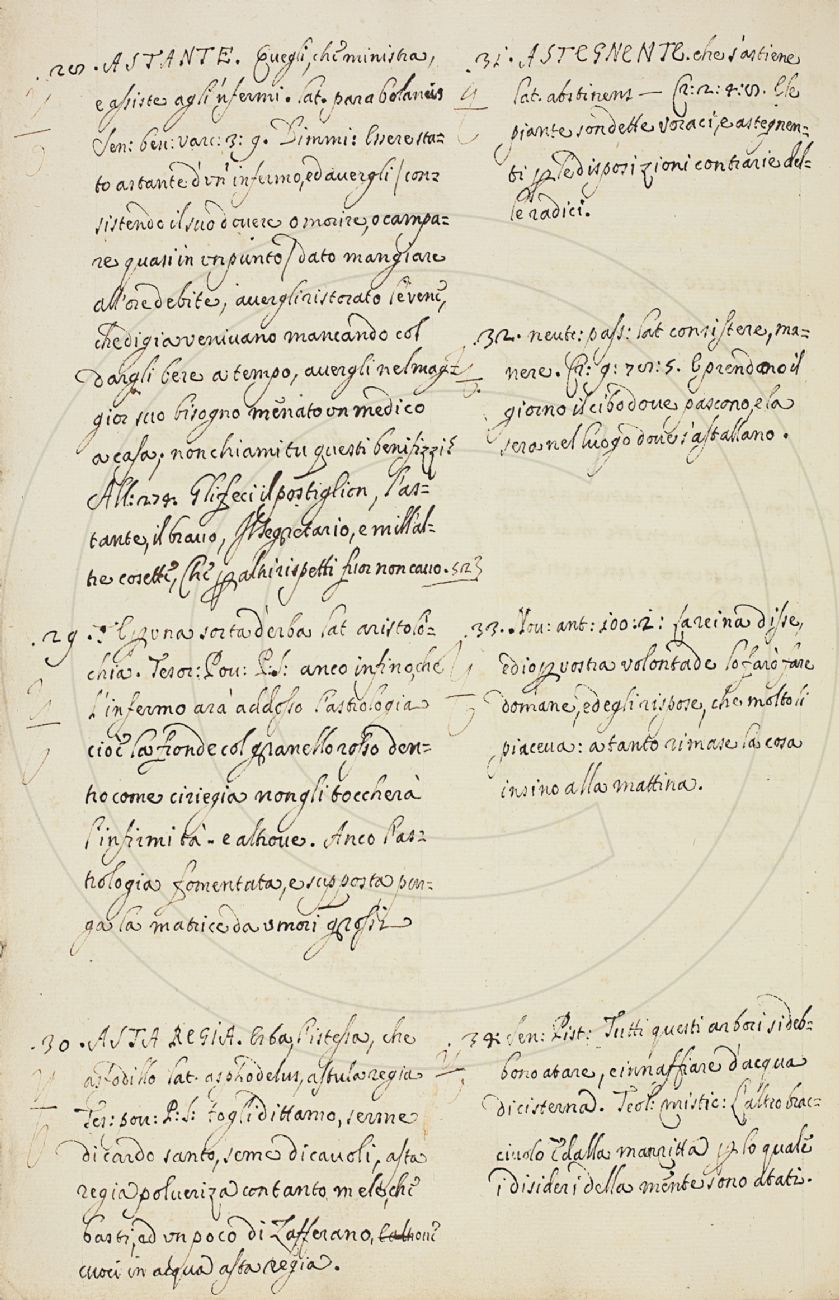 .28. ASTANTE. Quegli, chē ministra,
e assiste agl'infermi. lat. parabolanus
Sen: ben: varc: 3: 9. Dimmi: Essere sta=
to astante d'vn' infermo, ed avergli (con=
sistendo il suo dovere o morire, o campa=
re quasi in vn punto) dato mangiare
all'ore debite, avergli ristorato le venē,
che di gia venivano mancando col
Dargli bere a tempo, avergli nel mag=
gior suo bisogno mēnato vn medico
a casa; non chiami tu questi benifizzi?
All: 274. Gli feci il postiglion, l'as=
tante, il bravo, Il segretario, e mill'al=
tre cosettē, Chē ꝑ altri rispetti fuor non cavo. 523
.29. Ē vna sorta d'erba lat aristolo=
chia. Tesor: Pov: P.S: anco infino, che
l'infermo arà addosso l'astrologia
cioē la fronde col granello rosso den=
tro come ciriegia non gli toccherà
l'infirmità - e altrove. Anco l'as=
trologia fomentata, e supposta pur=
ga la matrice da vmori grossi
.30. ASTA REGIA. Erba, l'istessa, che
asfodillo lat. asphodelus, astula regia
Tes: pov: P.S: togli dittamo, serme
di cardo santo, seme di cavoli, asta
regia polveriza con tanto mele, chē
basti, ed vn poco di Zafferano,
cuoci in acqua asta regia.
31. ASTEGNENTE. che s'astiene
lat. abstinens — Cr: 2: 4: 8. E le
piante son dette voraci, e astegnen=
ti ꝑ le disposizioni contrarie del=
le radici.
.32. neutr: pass: lat consistere, ma=
nere. Cr: 9: 78: 5. E prendono il
giorno il cibo dove pascono, e la
sera nel luogo dove s'astallano.
.33. Nov: ant: 100: 2: Lareina disse,
ed io ꝑ vostra volontade lo farò fare
domane, ed egli rispose, che molto li
piaceva: a tanto rimase la cosa
insino alla mattina.
.34: Sen: Pist: Tutti questi arbori si deb=
bono atare, e innaffiare d'acqua
di cisterna. Teol: mistic: L'altro brac=
ciuolo ē dalla manritta ꝑ lo qualē
i disideri della mēnte sono atati.